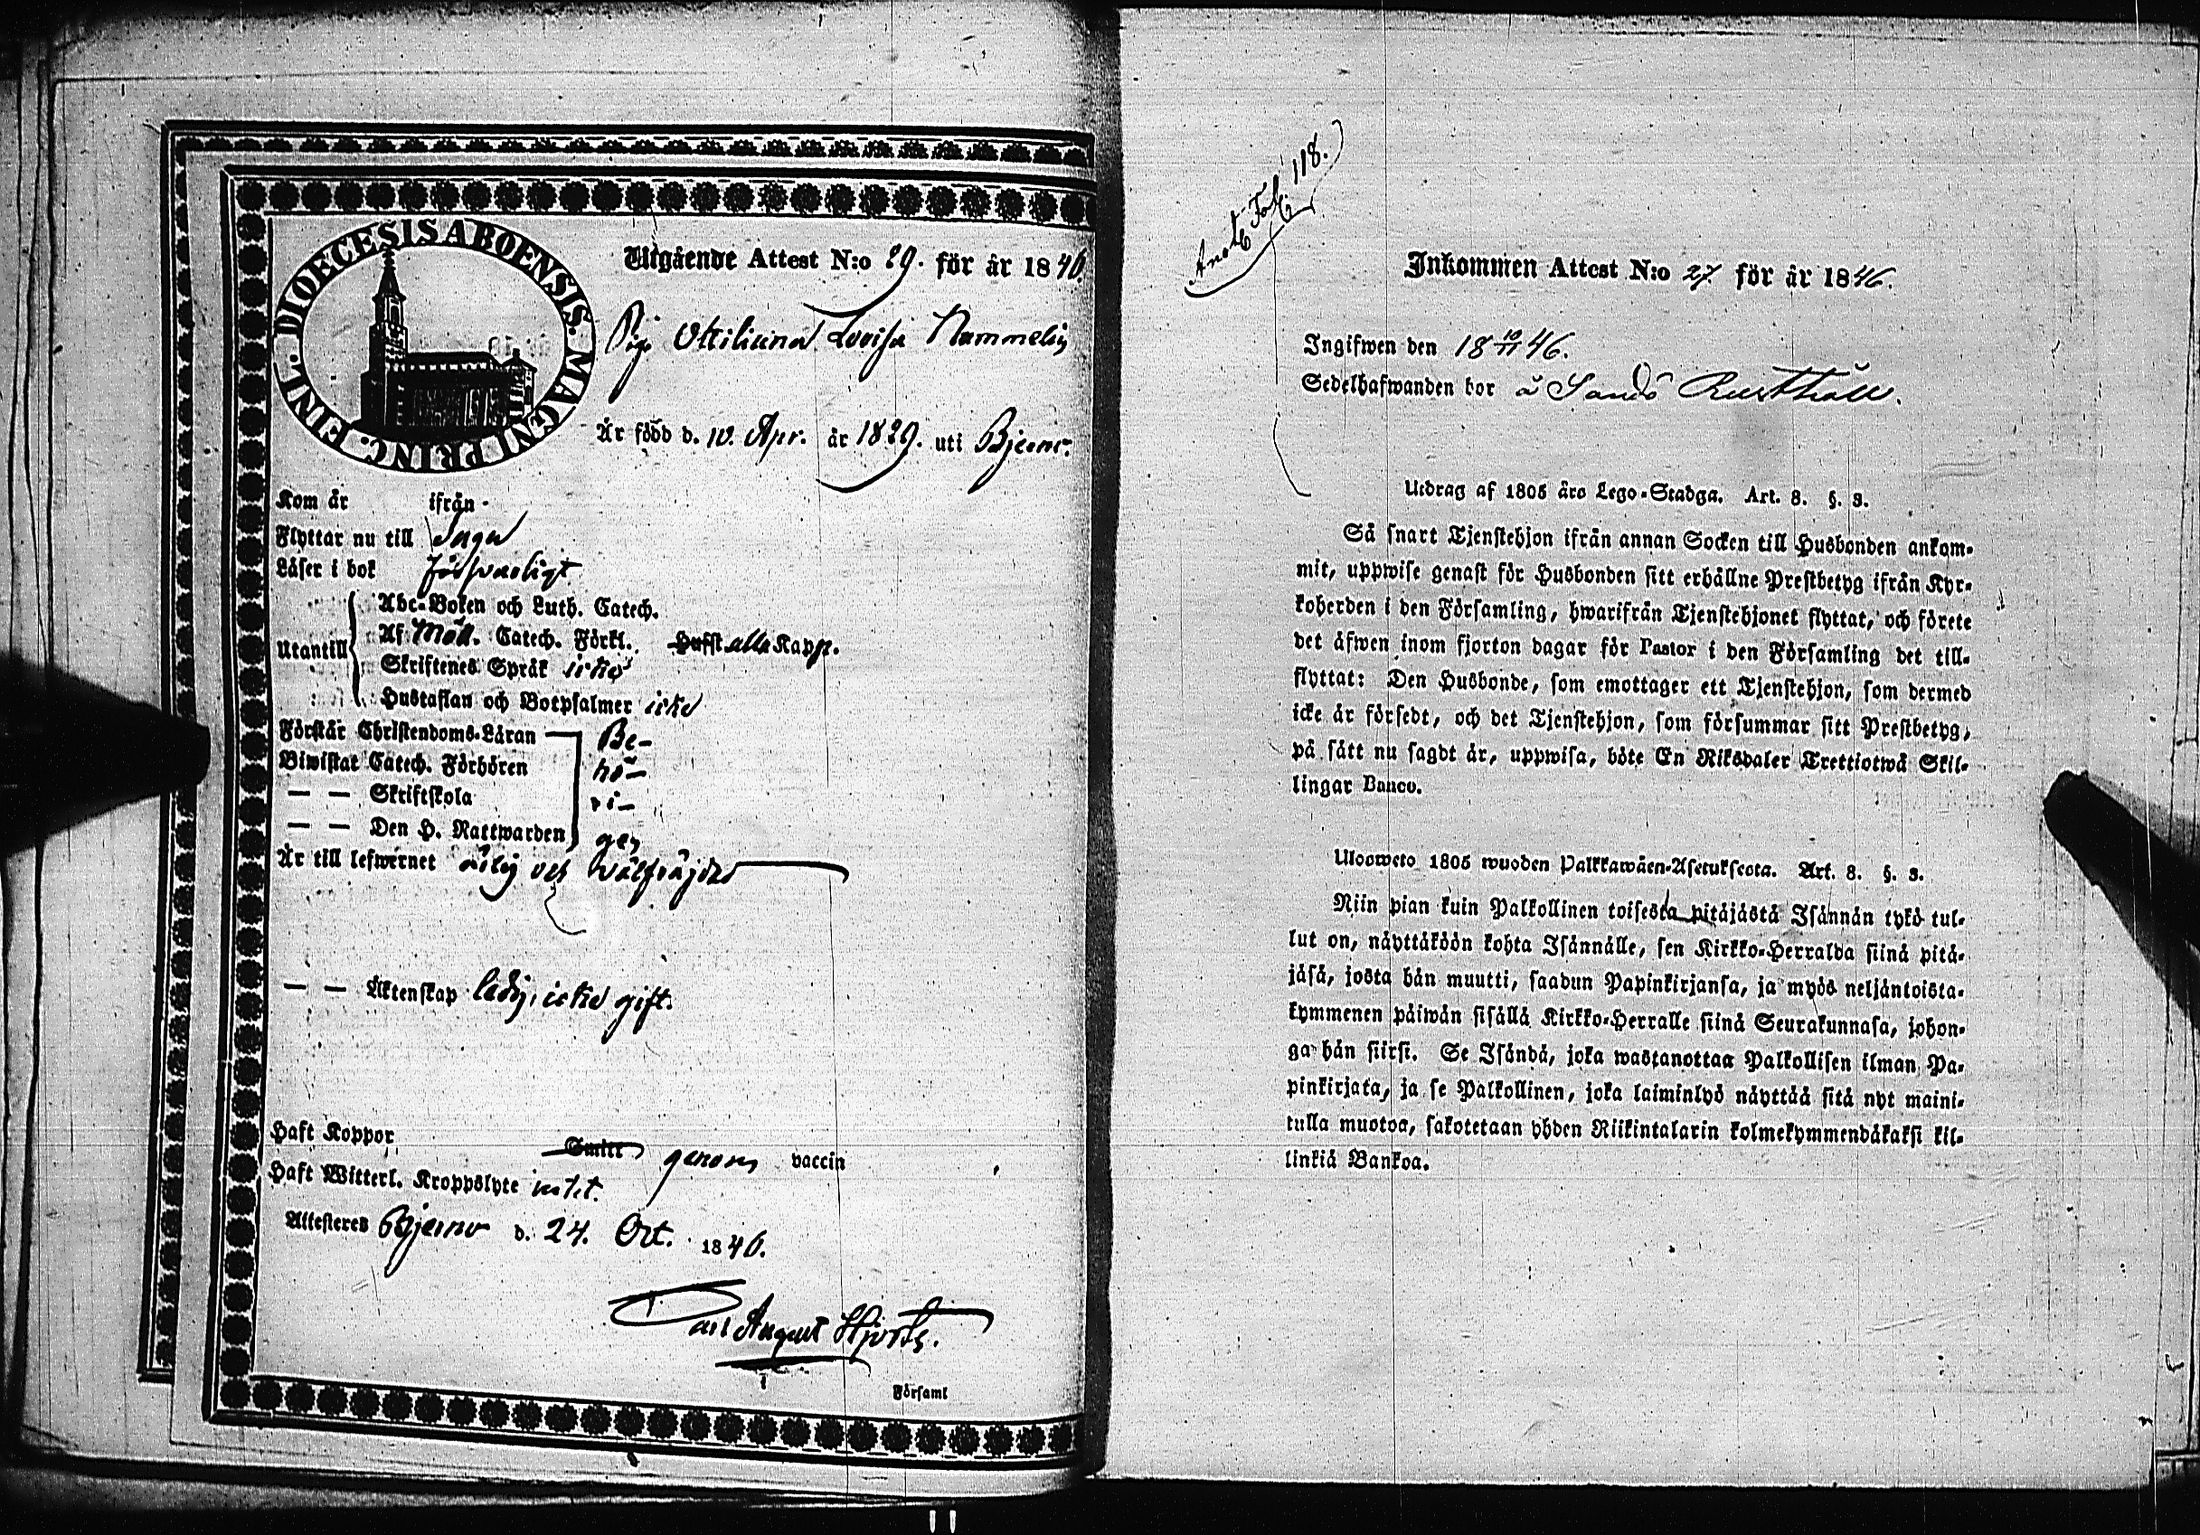 DIOECESIS ABOENSIS. MAGNI PRINC. FINL.
Utgående Attest N:o 29. för år 1846.
Pig. Ottiliana Lovisa Nummelin
Är född d. 10. Apr. år 1829. uti Bjerno.
Kom år ifrån
Flyttar nu till Sagu
Läser i bok försvarligt
Utantill
Abc-Boken och Luth. Catech.
Af Möll. Catech. Förkl. Hufst alla Kapp.
Skriftenes Språk icke
Hustaflan och Botpsalmer icke
Förstår Christendoms-Läran Be-
Biwistat Catech. Förhören hö-
— — Skriftskola ri-
— — Den H. Nattwarden gen
Är till lefwernet ärlig och wälfräjdad
— — Äktenskap ledig, icke gift.
Haft Koppor genom vaccin
Haft Witterl. Kroppslyte intet.
Attesteres Bjerno d. 24. Oct. 1846.
Carl August Hjorth.
Församl
Anot. Fol. 118.
Inkommen Attest N:o 27 för år 1846.
Ingifwen den 18 10/11 46.
Sedelhafwanden bor å Sandö Rusthåll.
Utdrag af 1805 års Lego-Stadga. Art. 8. §. 3.
Så snart Tjenstehjon ifrån annan Socken till Husbonden ankom-
mit, uppwise genast för Husbonden sitt erhållne Prestbetyg ifrån Kyr-
koherden i den Församling, hwarifrån Tjenstehjonet flyttat, och förete
det äfwen inom fjorton dagar för Pastor i den Församling det till-
flyttat: Den Husbonde, som emottager ett Tjenstehjon, som dermed
icke är försedt, och det Tjenstehjon, som försummar sitt Prestbetyg,
på sätt nu sagdt är, uppwisa, böte En Riksdaler Trettiotwå Skil-
lingar Banco.
Ulosweto 1805 wuoden Palkkawäen-Asetuksesta. Art. 8. §. 3.
Niin pian kuin Palkollinen toisesta pitäjästä Isännän tykö tul-
lut on, näyttäköön kohta Isännälle, sen Kirkko-Herralda siinä pitä-
jäsä, josta hän muutti, saadun Papinkirjansa, ja myös neljäntoista-
kymmenen päiwän sisällä Kirkko-Herralle siinä Seurakunnasa, johon-
ga hän siirsi. Se Isändä, joka wastanottaa Palkollisen ilman Pa-
pinkirjata, ja se Palkollinen, joka laiminlyö näyttää sitä nyt maini-
tulla muotoa, sakotetaan yhden Riikintalarin kolmekymmendäkaksi kil-
linkiä Bankoa.